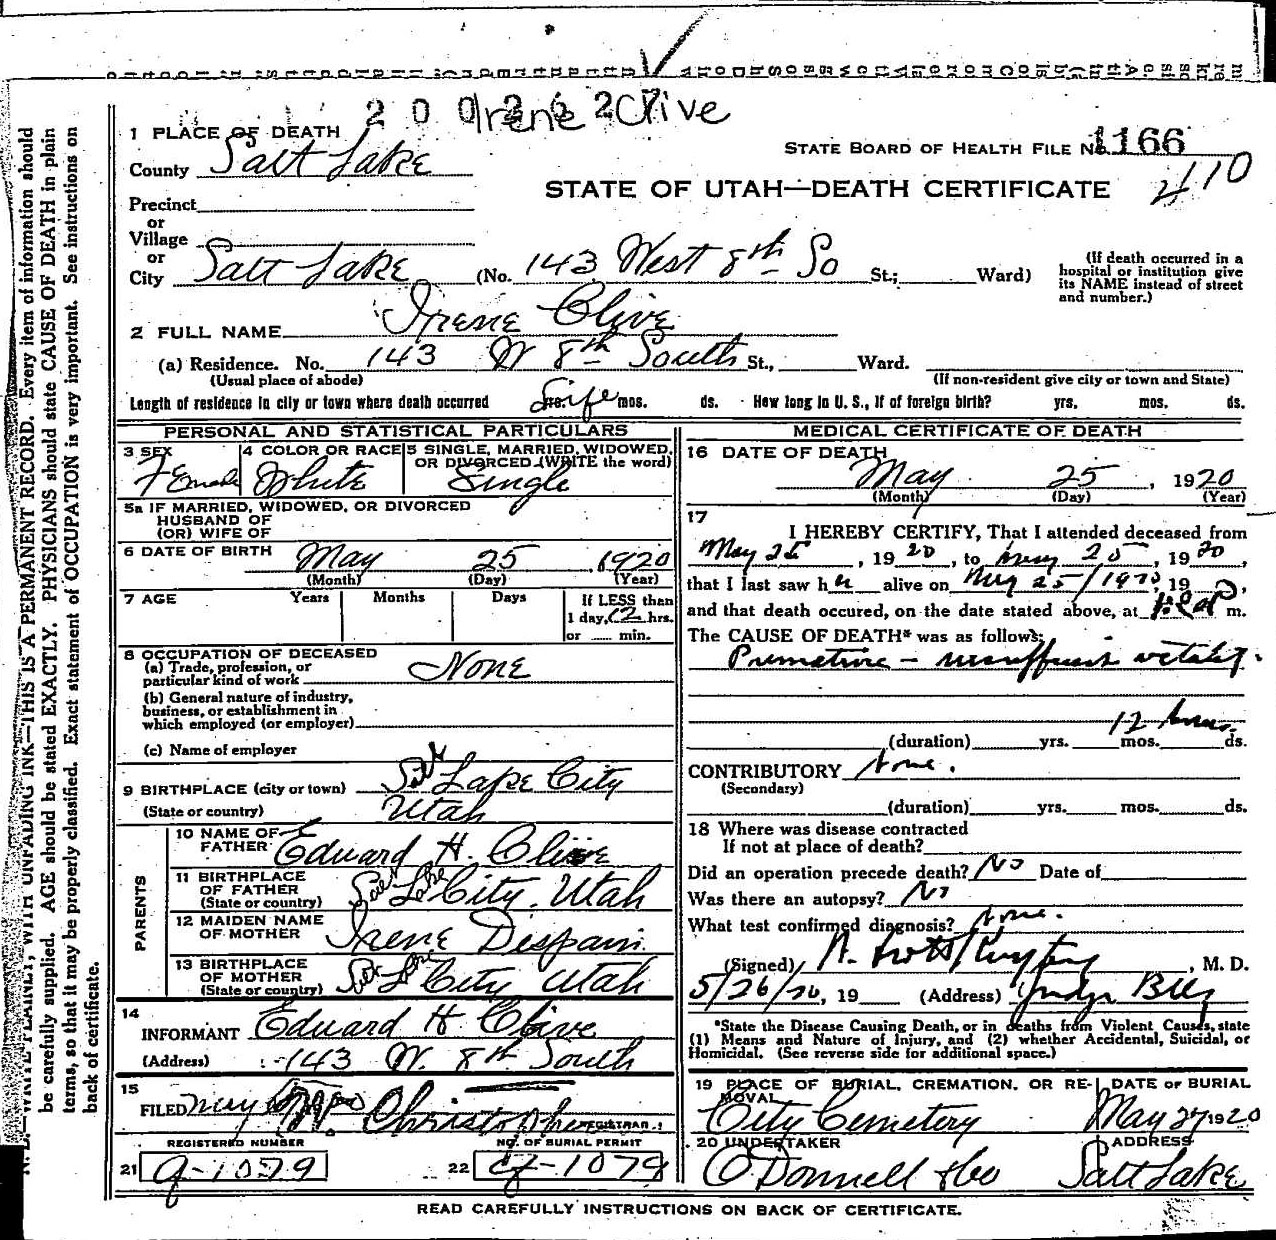 Irene Clive
1 PLACE OF DEATH
STATE BOARD OF HEALTH FILE No. 1166
County Salt Lake
410
STATE OF UTAH—DEATH CERTIFICATE
Precinct
or
Village
or
City Salt Lake (No. 143 West 8th So St.; Ward)
(If death occurred in a hospital or institution give its NAME instead of street and number.)
2 FULL NAME Irene Clive
(a) Residence. No. 143 W 8th South St., Ward.
(Usual place of abode) (If non-resident give city or town and State)
Length of residence in city or town where death occurred Life mos. ds. How long in U. S., if of foreign birth? yrs. mos. ds.
PERSONAL AND STATISTICAL PARTICULARS
3 SEX Female
4 COLOR OR RACE White
5 SINGLE, MARRIED, WIDOWED, OR DIVORCED (WRITE the word) Single
5a IF MARRIED, WIDOWED, OR DIVORCED
HUSBAND OF
(OR) WIFE OF
6 DATE OF BIRTH May 25, 1920
(Month) (Day) (Year)
7 AGE Years Months Days If LESS than
1 day, 12 hrs.
or ...... min.
8 OCCUPATION OF DECEASED
(a) Trade, profession, or
particular kind of work None
(b) General nature of industry,
business, or establishment in
which employed (or employer)
(c) Name of employer
9 BIRTHPLACE (city or town) Salt Lake City
(State or country) Utah
PARENTS
10 NAME OF FATHER Eduard H. Clive
11 BIRTHPLACE OF FATHER
(State or country) Salt Lake City, Utah
12 MAIDEN NAME OF MOTHER Irene Despain
13 BIRTHPLACE OF MOTHER
(State or country) Salt Lake City Utah
14
INFORMANT Eduard H Clive
(Address) 143 W. 8th South
15
FILED May Christopherson
REGISTRAR
REGISTERED NUMBER NO. OF BURIAL PERMIT
21 9-1079 22 1079
MEDICAL CERTIFICATE OF DEATH
16 DATE OF DEATH
May 25, 1920
(Month) (Day) (Year)
17
I HEREBY CERTIFY, That I attended deceased from
May 25, 1920, to May 25, 1920,
that I last saw her alive on May 25/1920, 19
and that death occured, on the date stated above, at m.
The CAUSE OF DEATH* was as follows:
Premature – insufficient vitality.
12 hours.
(duration) yrs. mos. ds.
CONTRIBUTORY None.
(Secondary)
(duration) yrs. mos. ds.
18 Where was disease contracted
If not at place of death?
Did an operation precede death? No Date of
Was there an autopsy? No
What test confirmed diagnosis? None.
(Signed) , M. D.
5/26/20, 19 (Address) Judge Bldg
*State the Disease Causing Death, or in deaths from Violent Causes, state
(1) Means and Nature of Injury, and (2) whether Accidental, Suicidal, or
Homicidal. (See reverse side for additional space.)
19 PLACE OF BURIAL, CREMATION, OR REMOVAL City Cemetery
DATE OF BURIAL May 27 1920
20 UNDERTAKER O'Donnell & Co
ADDRESS Salt Lake
READ CAREFULLY INSTRUCTIONS ON BACK OF CERTIFICATE.
WRITE PLAINLY, WITH UNFADING INK—THIS IS A PERMANENT RECORD. Every item of information should
be carefully supplied. AGE should be stated EXACTLY. PHYSICIANS should state CAUSE OF DEATH in plain
terms, so that it may be properly classified. Exact statement of OCCUPATION is very important. See instructions on
back of certificate.